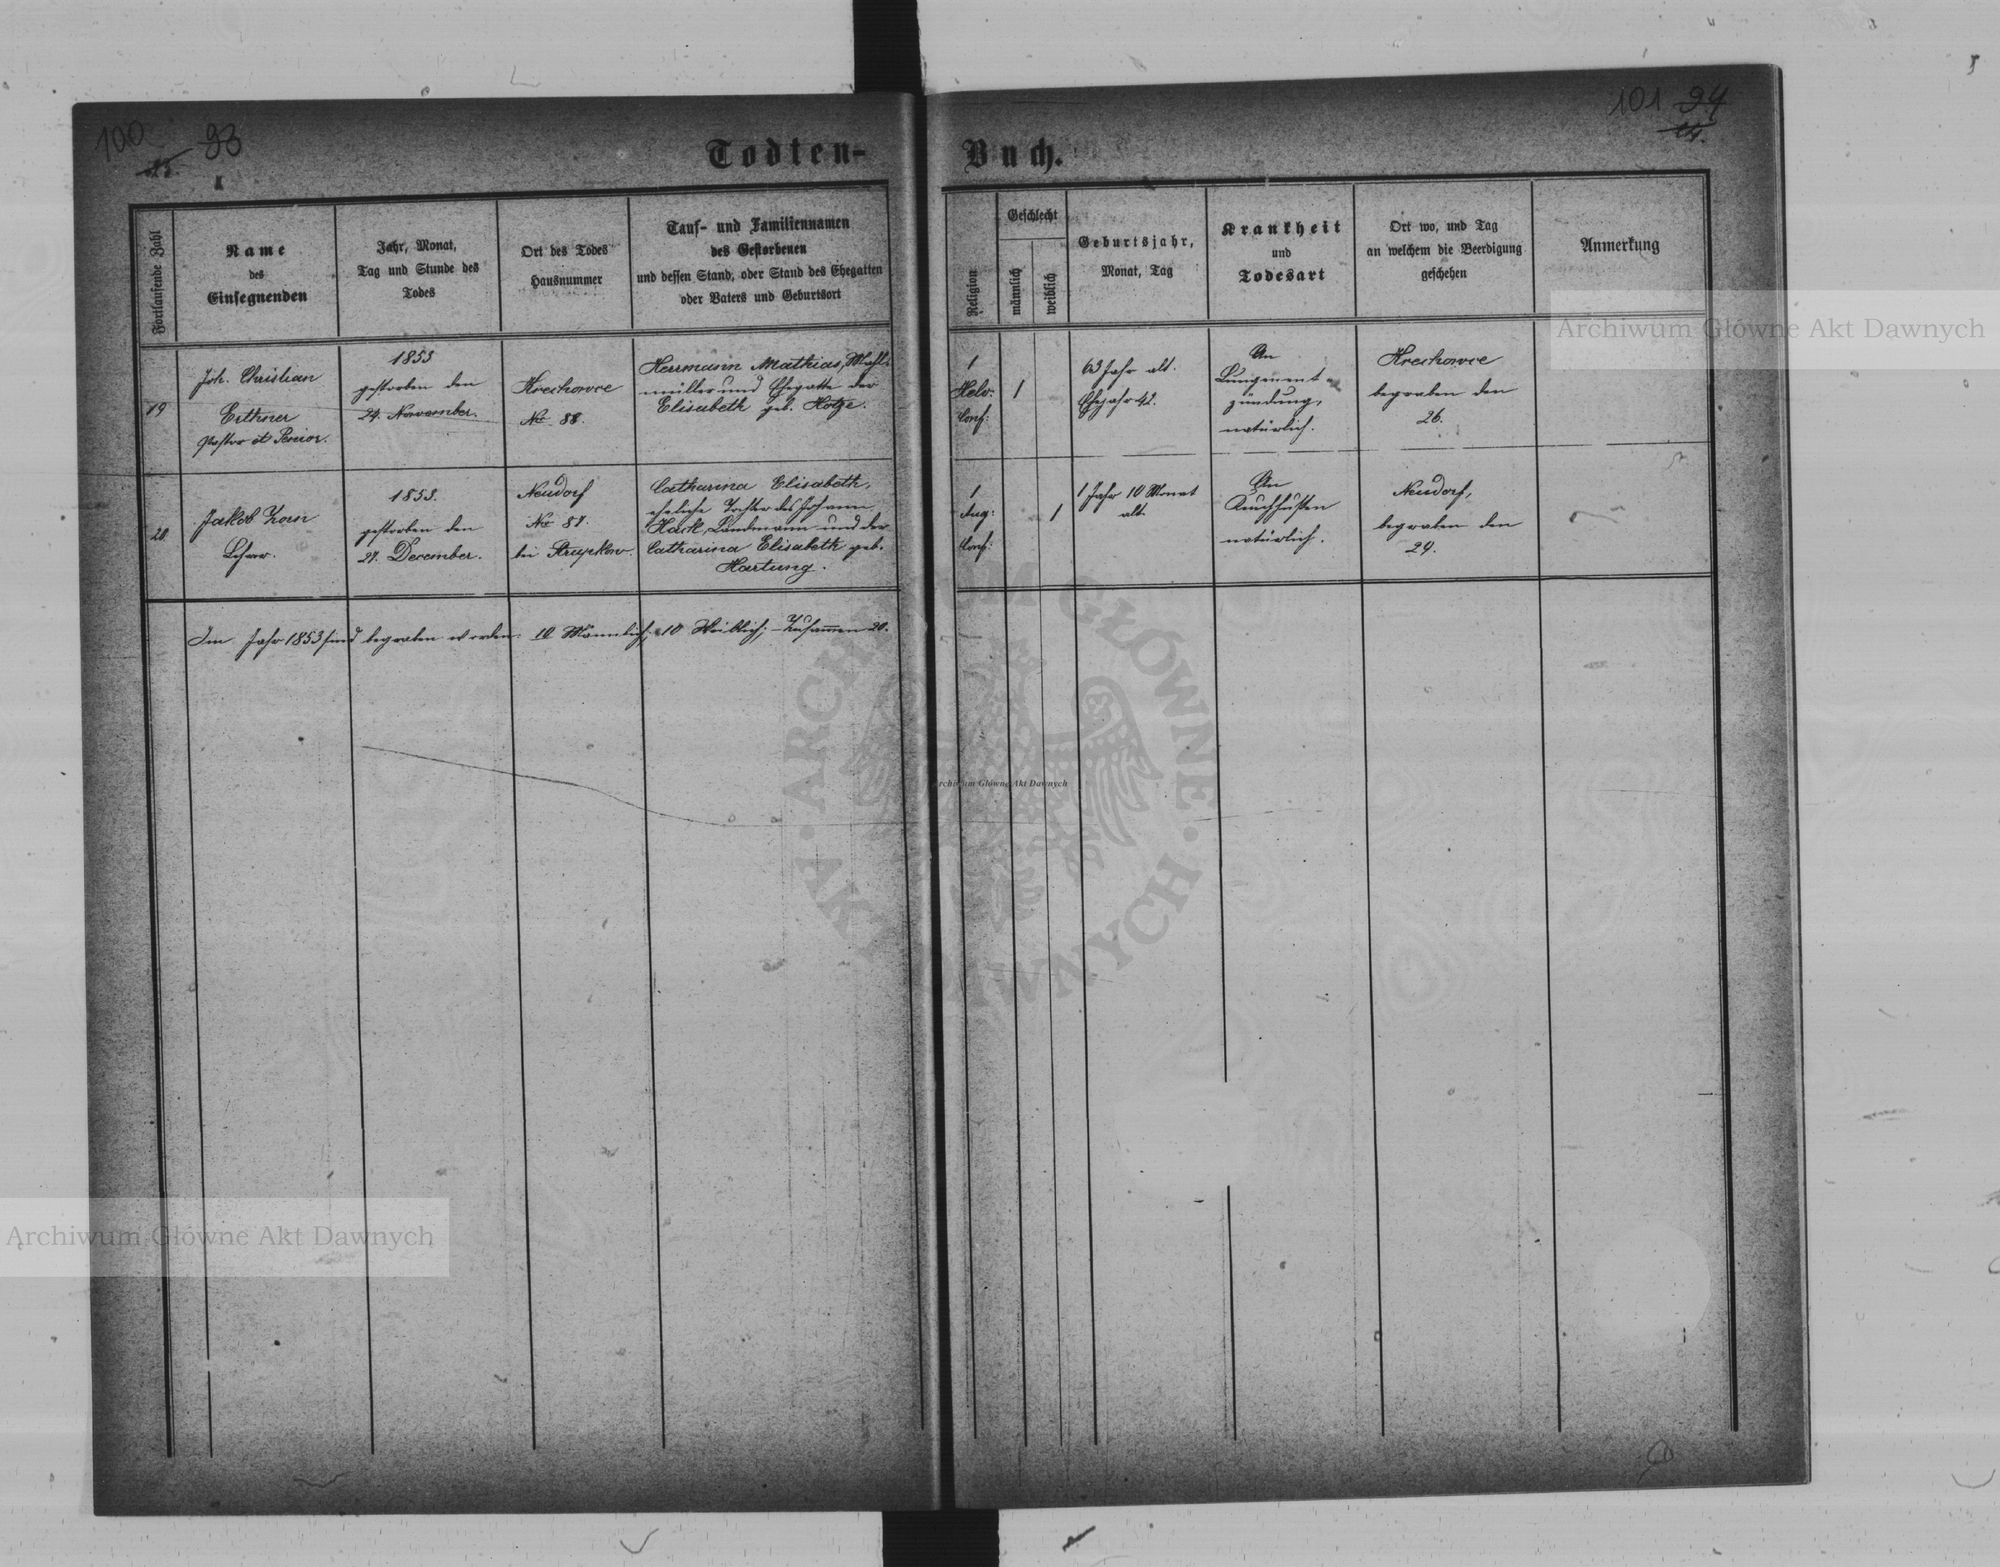 100 93
13.
101 94
14.
Todten-Buch.
Fortlaufende Zahl
Name
des
Einsegnenden
Jahr, Monat,
Tag und Stunde des
Todes
Ort des Todes
Hausnummer
Tauf- und Familiennamen
des Gestorbenen
und dessen Stand, oder Stand des Ehegatten
oder Vaters und Geburtsort
Religion
Geschlecht
männlich
weiblich
Geburtsjahr,
Monat, Tag
Krankheit
und
Todesart
Ort wo, und Tag
an welchem die Beerdigung
geschehen
Anmerkung
19
Joh. Christian
Erthner
Pastor et Senior.
1853
gestorben den
24. November.
Krechowce
No 88.
Herrmann Mathias, Mahl-
müller und Ehegatte der
Elisabeth geb. Hotze.
1
Helv:
Conf:
1
63 Jahr alt.
Ehejahr 42.
An
Lungenent-
zündung,
natürlich.
Krechowce
begraben den
26.
20
Jakob Zorn
Lehrer.
1853.
gestorben den
27. December.
Neudorf
No 87.
bei Strupkow.
Catharina Elisabeth,
eheliche Tochter des Johann
Hack, Landmann und der
Catharina Elisabeth geb.
Hartung.
1
Aug:
Conf:
1
1 Jahr 10 Monat
alt.
An
Keuchhusten
natürlich.
Neudorf,
begraben den
29.
Im Jahr 1853 sind begraben worden: 10 Männlich; 10 Weiblich; Zusammen 20.
Archiwum Główne Akt Dawnych
ARCHIWUM GŁÓWNE · AKT DAWNYCH ·
Archiwum Główne Akt Dawnych
Archiwum Główne Akt Dawnych